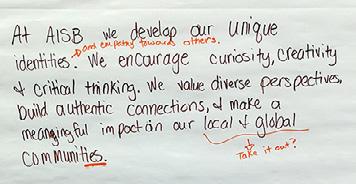 At AISB we develop our unique
and empathy towards others.
identities. We encourage curiosity, creativity
& critical thinking. We value diverse perspectives,
build authentic connections, & make a
meaningful impact on our local & global
communities.
Take it out?